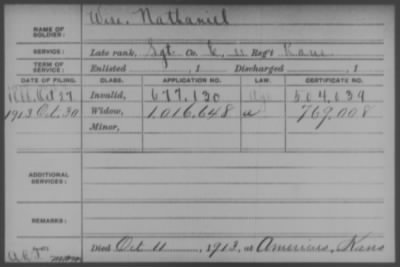 NAME OF SOLDIER: Wise, Nathaniel
SERVICE: Late rank, Sgt Co K 11 Reg't Kans
TERM OF SERVICE: Enlisted , 1 Discharged , 1
DATE OF FILING. CLASS. APPLICATION NO. LAW. CERTIFICATE NO.
Oct 27 Invalid, 677,130 504,639
1913 Oct. 30 Widow, 1,016,648 769,008
Minor,
ADDITIONAL SERVICES:
REMARKS:
Died Oct 11, 1913, at Americus, Kans